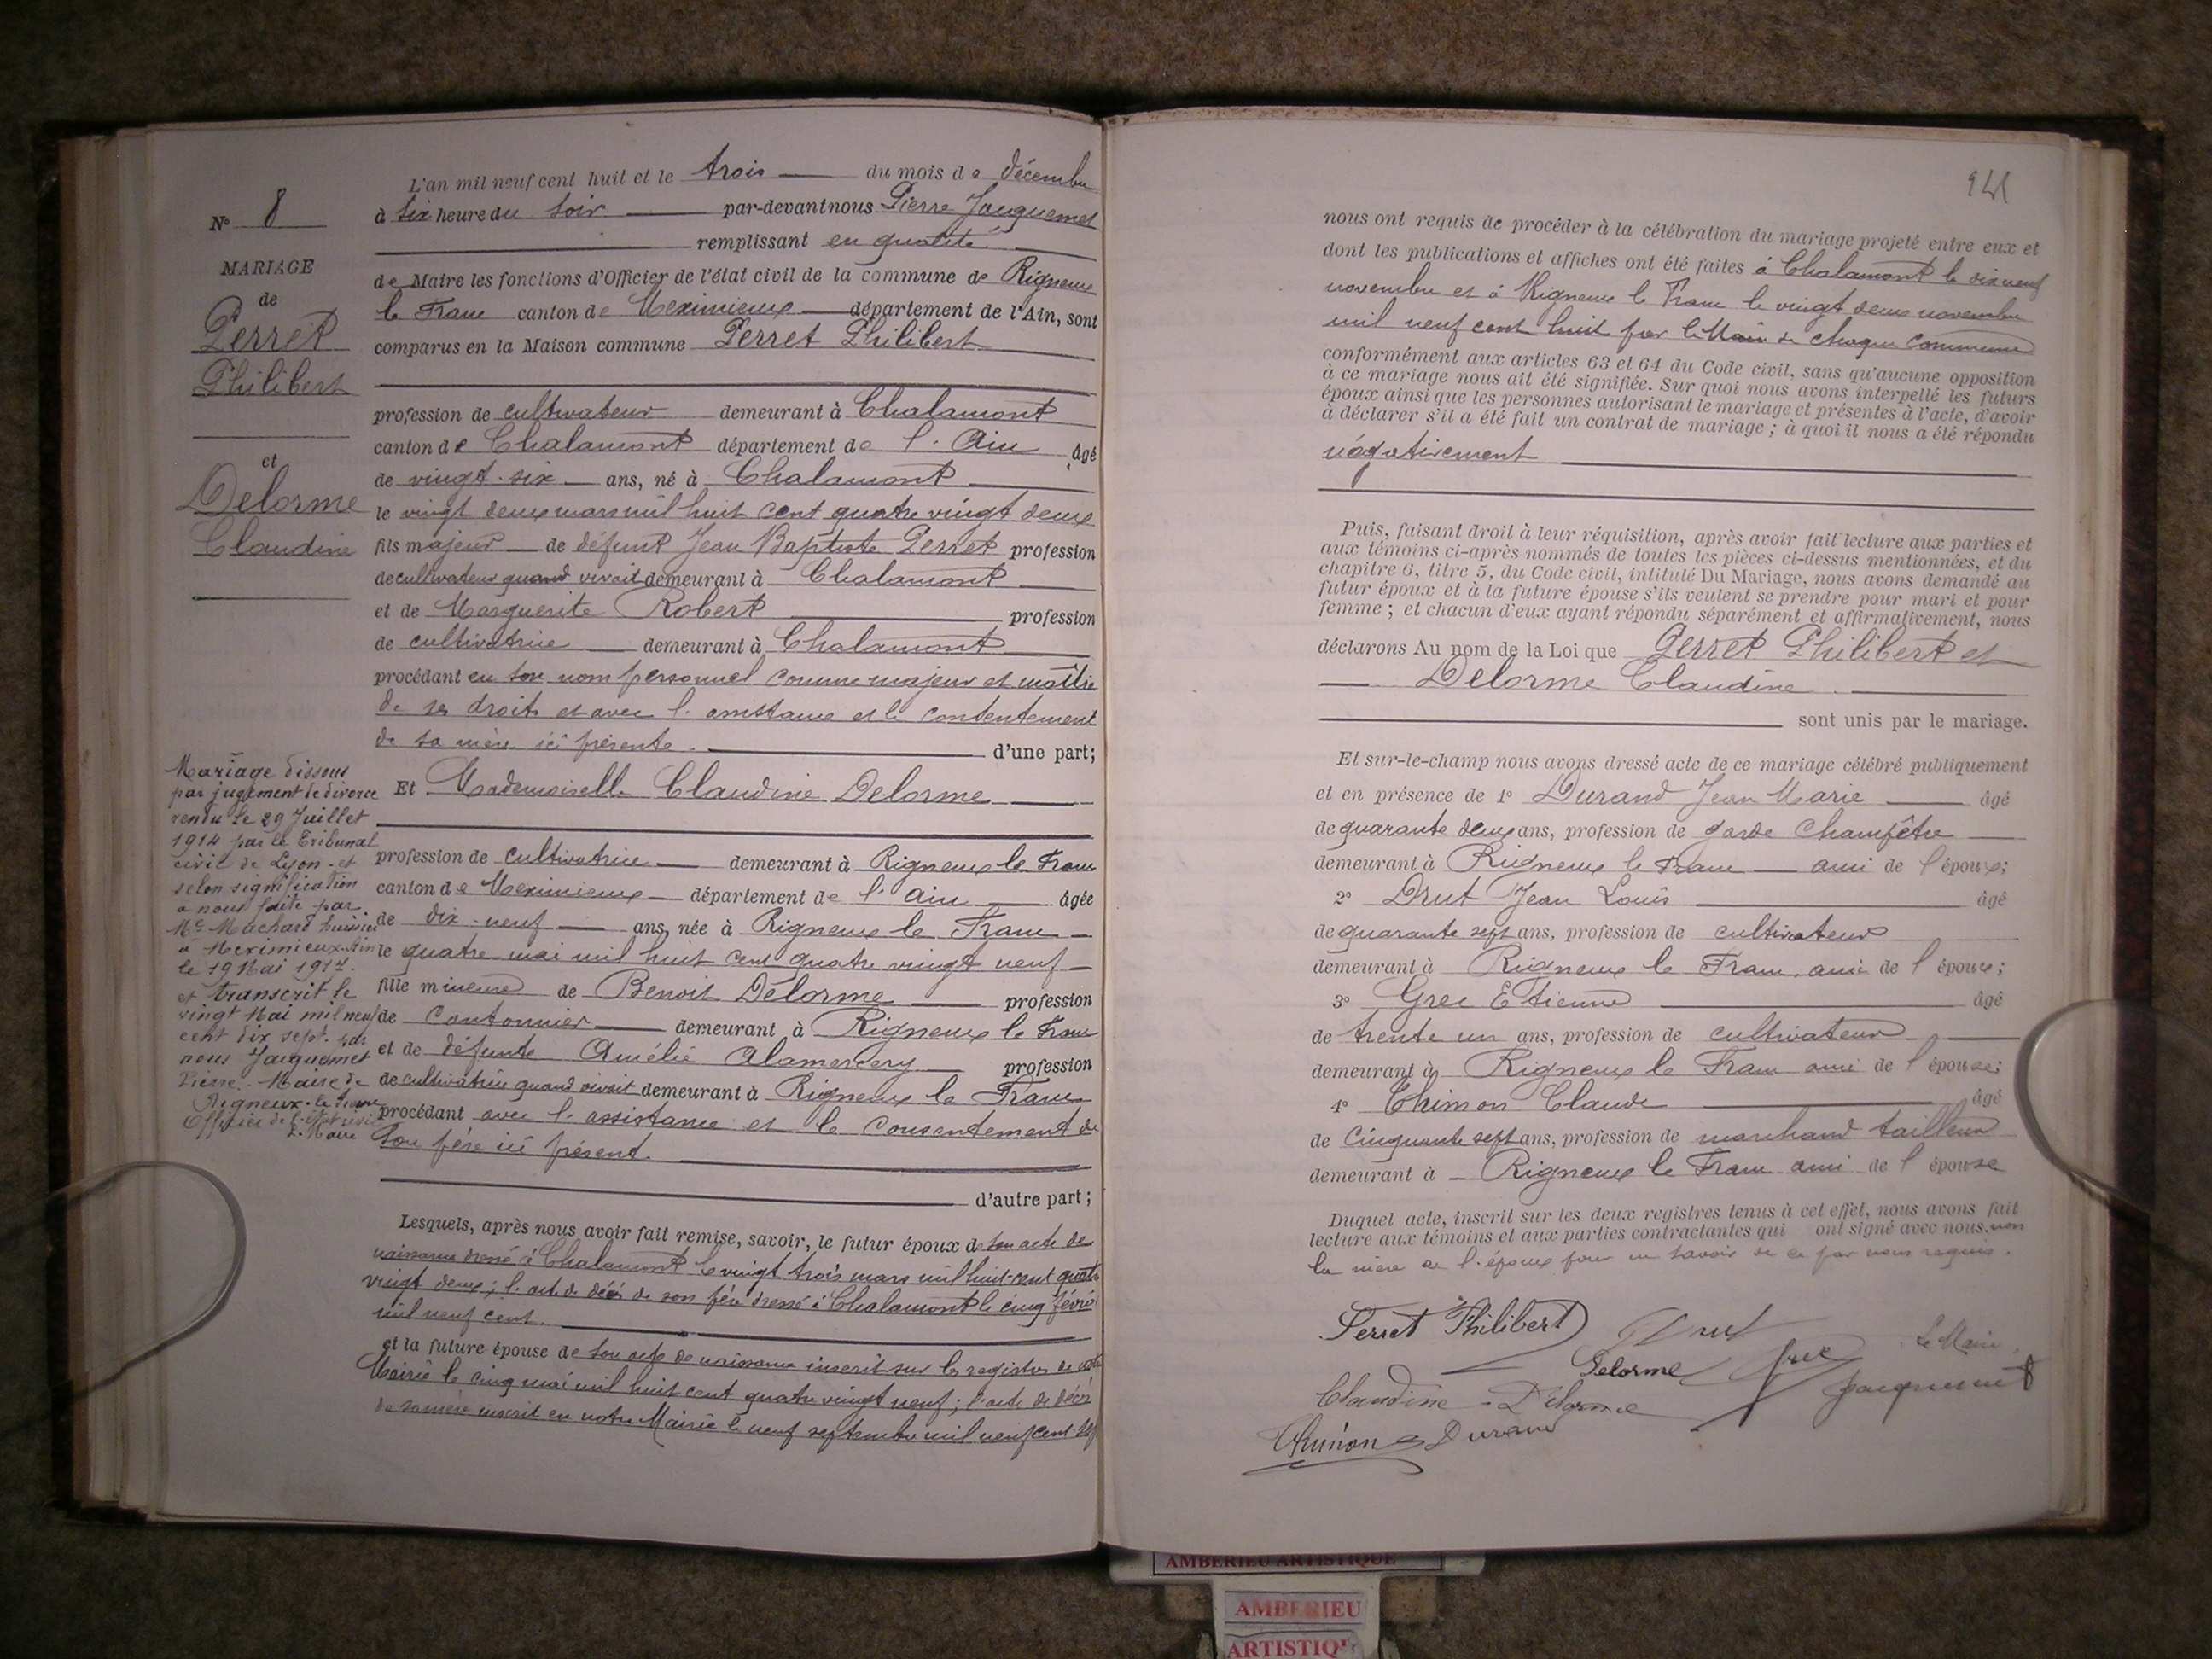 N° 8
MARIAGE
de
Perret
Philibert
et
Delorme
Claudine
Mariage dissous
par jugement de divorce
rendu le 29 Juillet
1914 par le Tribunal
civil de Lyon et
selon signification
a nous faite par
Me Machard huissier
a Meximieux Ain
le 19 Mai 1917.
et transcrit le
vingt Mai mil neuf
cent dix sept par
nous Jacquemet
Pierre Maire de
Rigneux-le-Franc
Officier de l'Etat civil
Le Maire
L'an mil neuf cent huit et le trois du mois de décembre
à six heure du soir par-devant nous Pierre Jacquemet
remplissant en qualité
de Maire les fonctions d'Officier de l'état civil de la commune de Rigneux
le Franc canton de Meximieux département de l'Ain, sont
comparus en la Maison commune Perret Philibert
profession de cultivateur demeurant à Chalamont
canton de Chalamont département de l'Ain âgé
de vingt-six ans, né à Chalamont
le vingt deux mars mil huit cent quatre vingt deux
fils majeur de défunt Jean Baptiste Perret profession
de cultivateur quand vivait demeurant à Chalamont
et de Marguerite Robert profession
de cultivatrice demeurant à Chalamont
procédant en son nom personnel comme majeur et maître
de ses droits et avec l'assistance et le contentement
de sa mère ici présente. d'une part;
Et Mademoiselle Claudine Delorme
profession de cultivatrice demeurant à Rigneux le Franc
canton de Meximieux département de l'Ain âgée
de dix-neuf ans, née à Rigneux le Franc
le quatre mai mil huit cent quatre vingt neuf
fille mineure de Benoit Delorme profession
de Cantonnier demeurant à Rigneux le Franc
et de défunte Amélie Alamercery profession
de cultivatrice quand vivait demeurant à Rigneux le Franc
procédant avec l'assistance et le consentement de
son père ici présent.
d'autre part;
Lesquels, après nous avoir fait remise, savoir, le futur époux de son acte de
naissance dressé à Chalamont le vingt trois mars mil huit-cent quatre
vingt deux; l'acte de décès de son père dressé à Chalamont le cinq février
mil neuf cent.
et la future épouse de son acte de naissance inscrit sur les registres de cette
Mairie le cinq mai mil huit cent quatre vingt neuf; l'acte de décès
de sa mère inscrit en notre Mairie le neuf septembre mil neuf cent sept
nous ont requis de procéder à la célébration du mariage projeté entre eux et
dont les publications et affiches ont été faites à Chalamont le dix neuf
novembre et à Rigneux le Franc le vingt deux novembre
mil neuf cent huit par le Maire de chaque commune
conformément aux articles 63 et 64 du Code civil, sans qu'aucune opposition
à ce mariage nous ait été signifiée. Sur quoi nous avons interpellé les futurs
époux ainsi que les personnes autorisant le mariage et présentes à l'acte, d'avoir
à déclarer s'il a été fait un contrat de mariage; à quoi il nous a été répondu
négativement
Puis, faisant droit à leur réquisition, après avoir fait lecture aux parties et
aux témoins ci-après nommés de toutes les pièces ci-dessus mentionnées, et du
chapitre 6, titre 5, du Code civil, intitulé Du Mariage, nous avons demandé au
futur époux et à la future épouse s'ils veulent se prendre pour mari et pour
femme; et chacun d'eux ayant répondu séparément et affirmativement, nous
déclarons Au nom de la Loi que Perret Philibert et
Delorme Claudine
sont unis par le mariage.
Et sur-le-champ nous avons dressé acte de ce mariage célébré publiquement
et en présence de 1° Durand Jean Marie âgé
de quarante deux ans, profession de garde Champêtre
demeurant à Rigneux le Franc ami de l'époux;
2° Drut Jean Louis âgé
de quarante sept ans, profession de cultivateur
demeurant à Rigneux le Franc ami de l'époux;
3° Grec Etienne âgé
de trente un ans, profession de cultivateur
demeurant à Rigneux le Franc ami de l'épouse;
4° Thimon Claude âgé
de cinquante sept ans, profession de marchand tailleur
demeurant à Rigneux le Franc ami de l'épouse
Duquel acte, inscrit sur les deux registres tenus à cet effet, nous avons fait
lecture aux témoins et aux parties contractantes qui ont signé avec nous. non
la mère de l'époux pour ne savoir de ce par nous requis.
Perret Philibert Drut
Delorme Grec Le Maire
Claudine Delorme Jacquemet
Thimon Durand
AMBERIEU ARTISTIQUE
AMBERIEU
ARTISTIQ